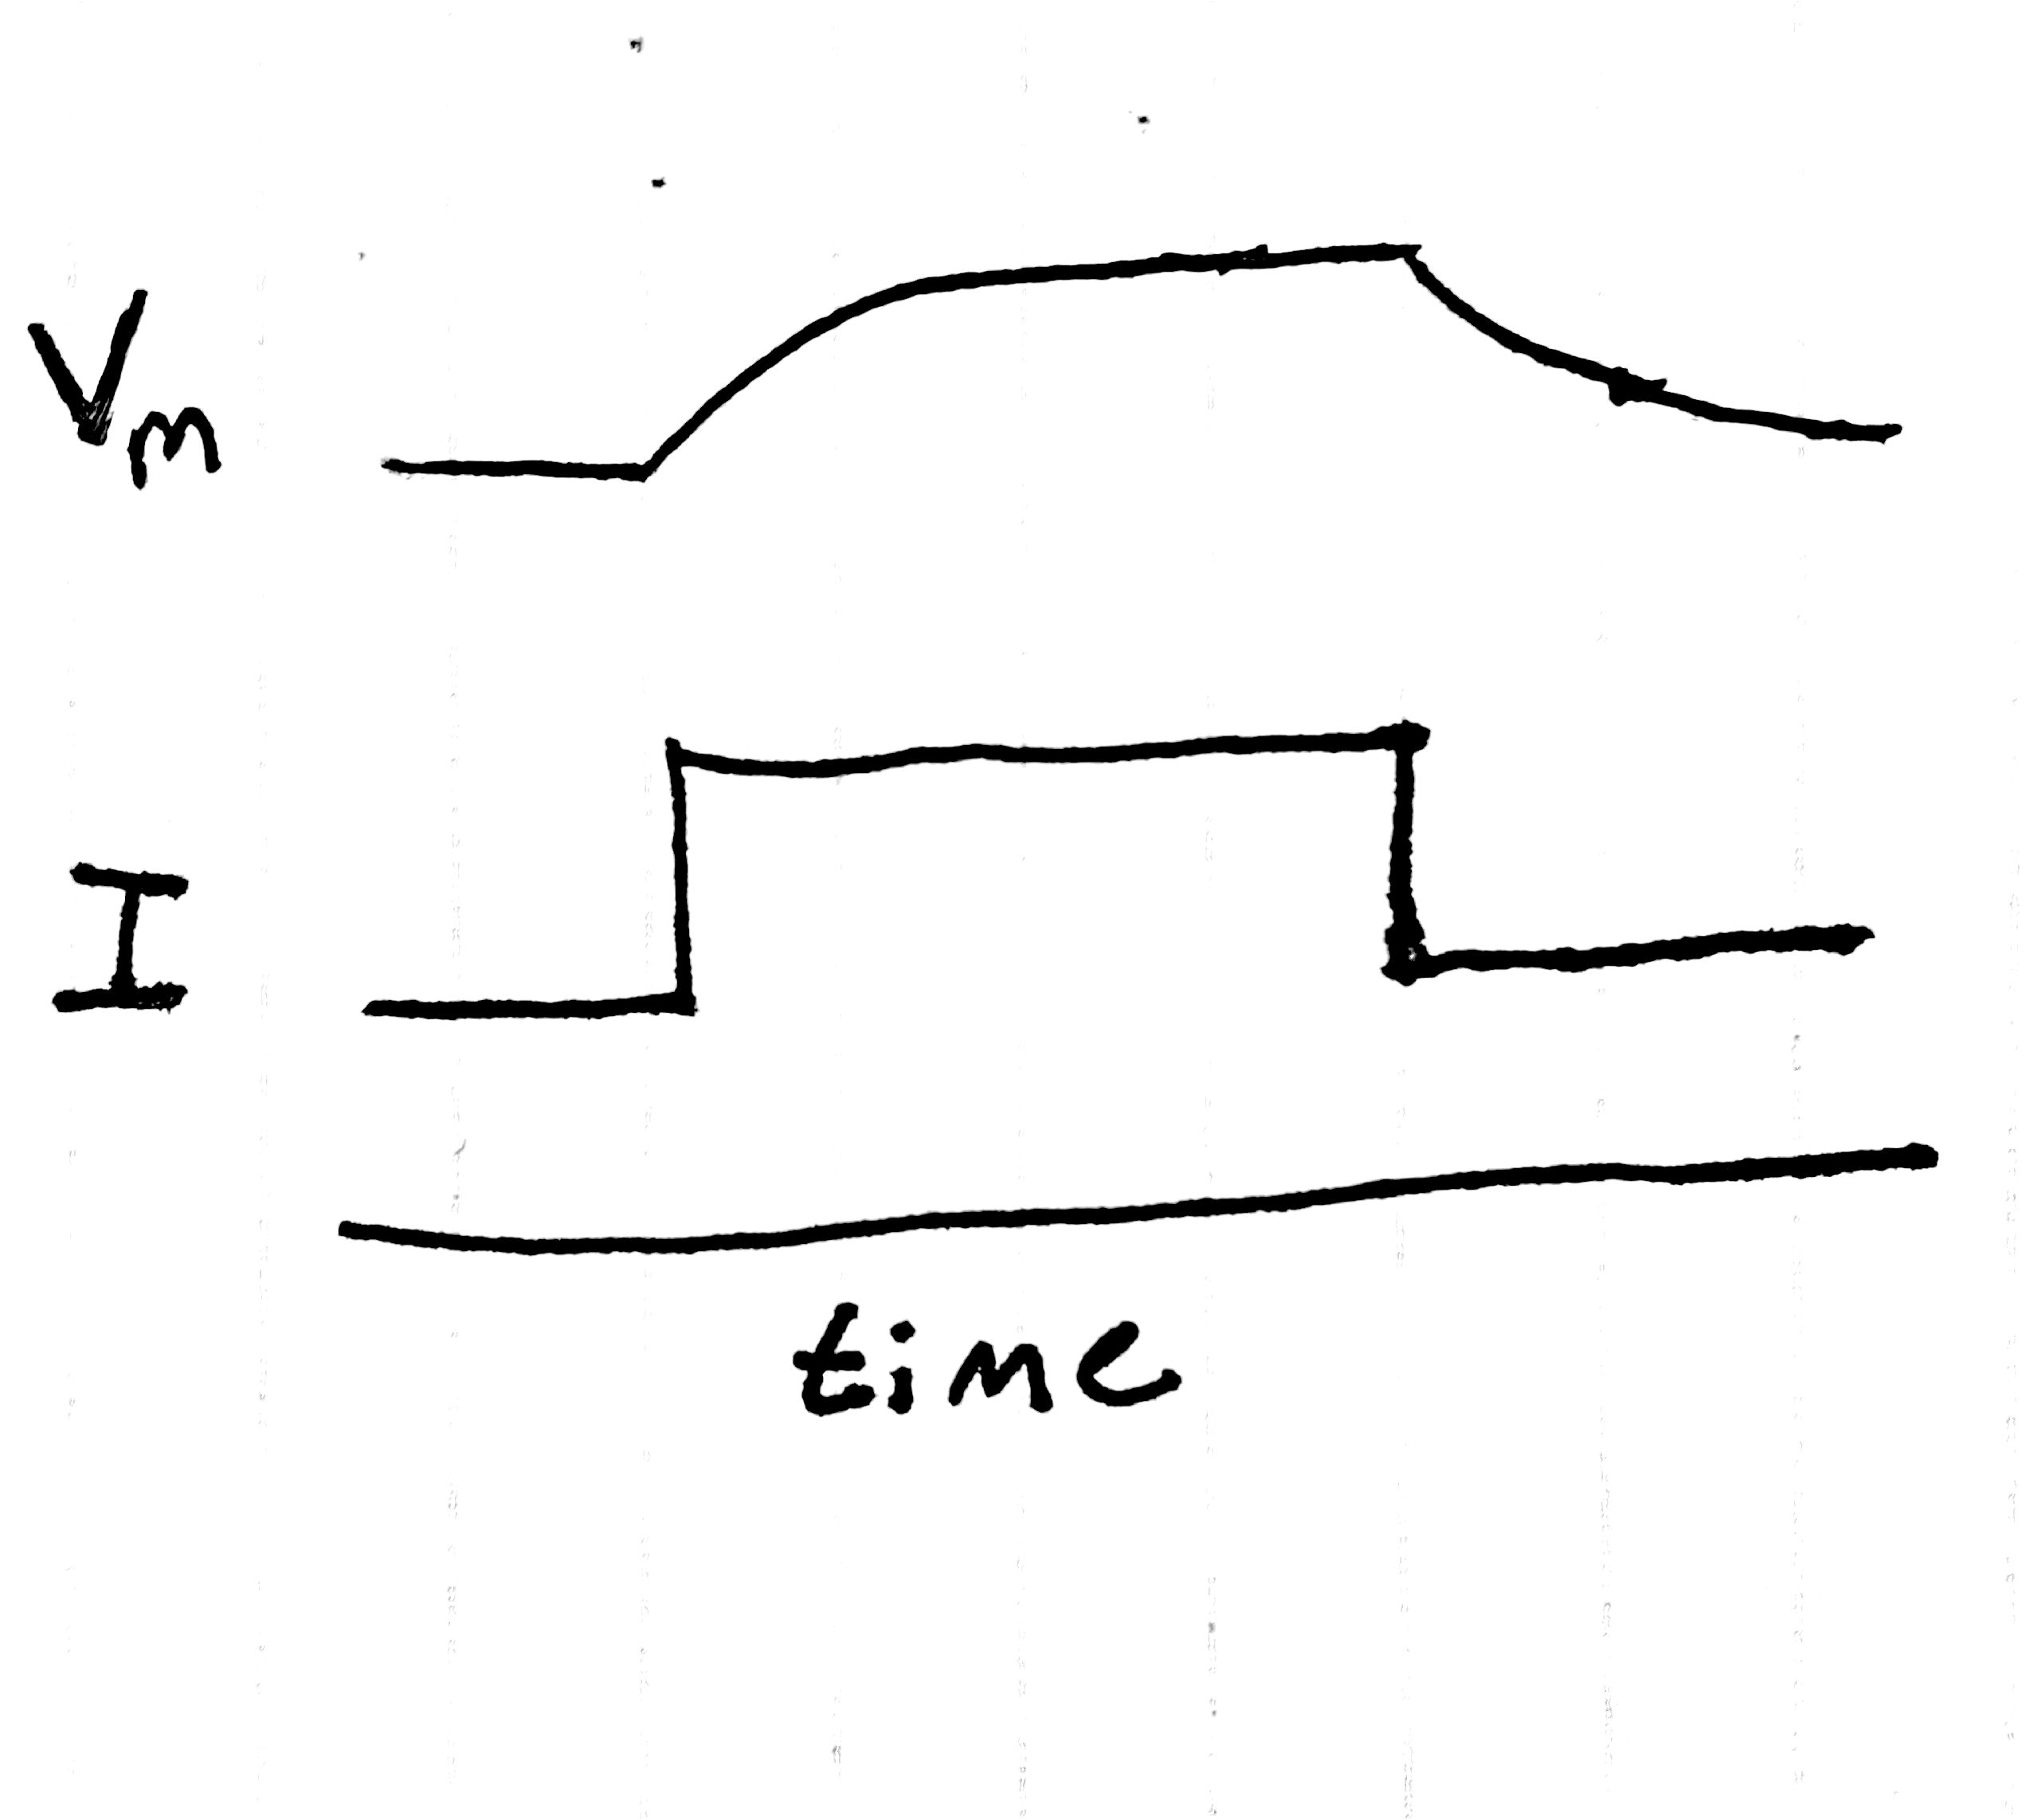 Vm
I
time